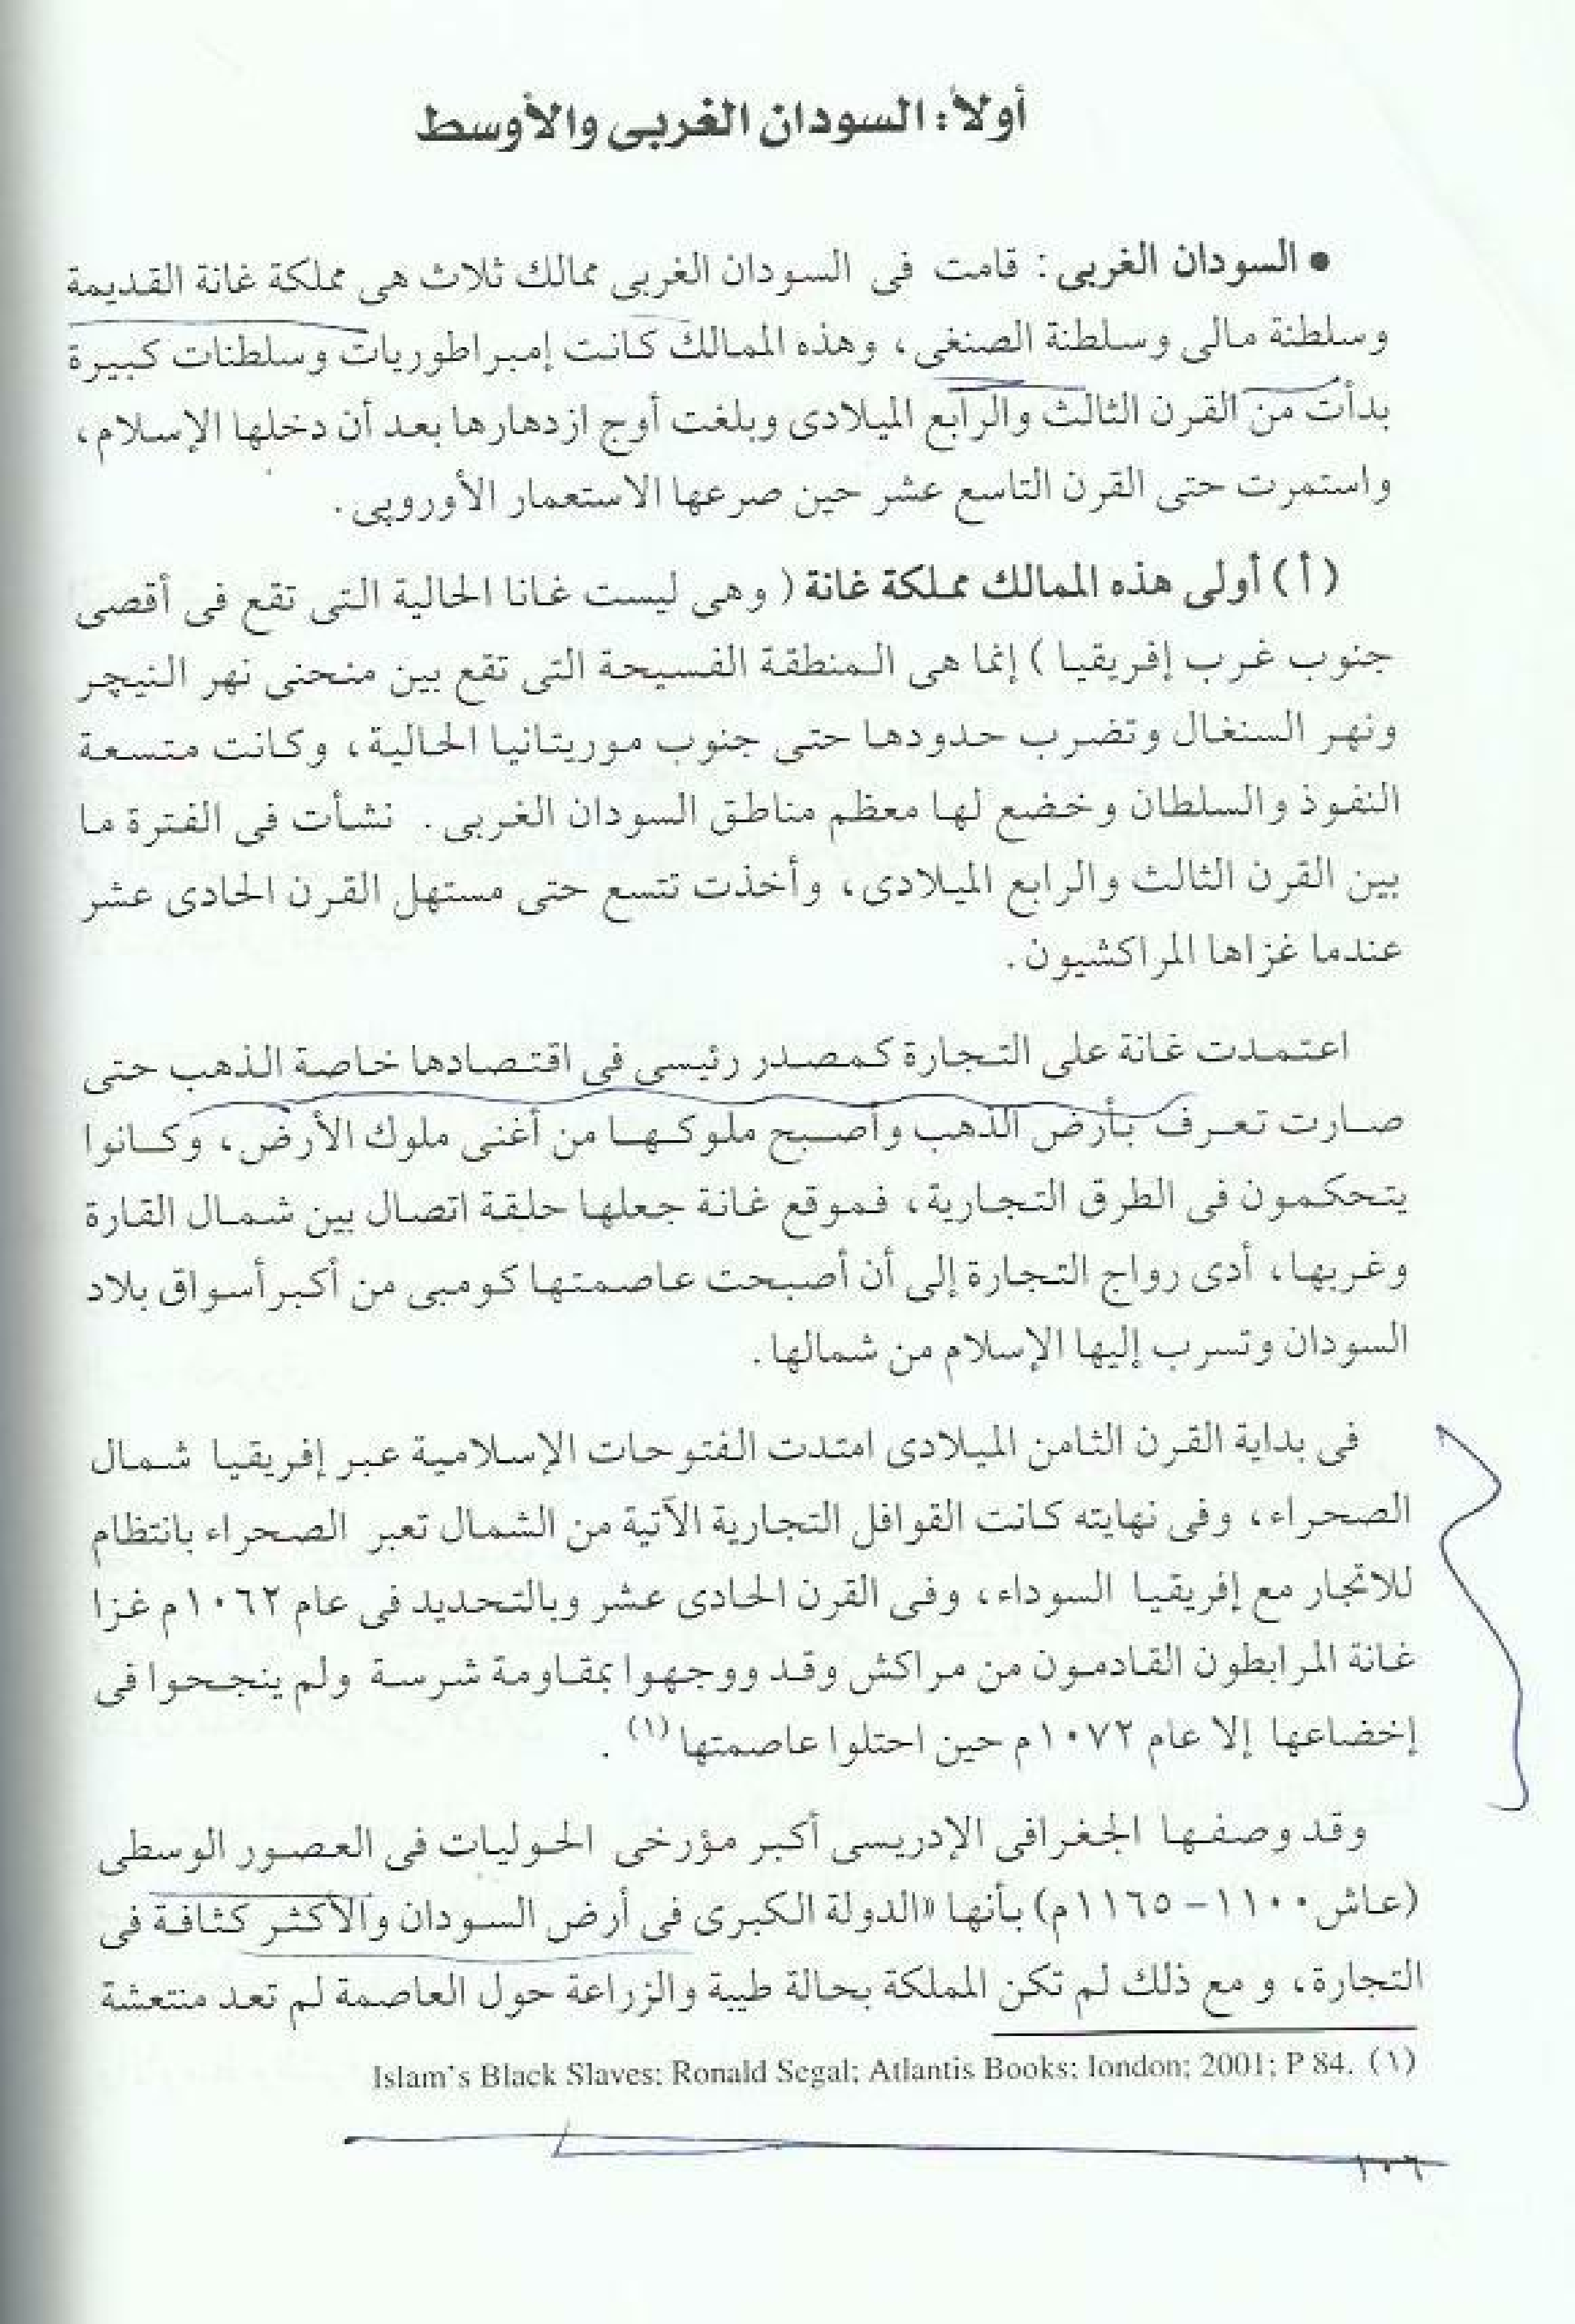 أولاً: السودان الغربى والأوسط
• السودان الغربى: قامت فى السودان الغربى ممالك ثلاث هى مملكة غانة القديمة
وسلطنة مالى وسلطنة الصنغى، وهذه الممالك كانت إمبراطوريات وسلطنات كبيرة
بدأت من القرن الثالث والرابع الميلادى وبلغت أوج ازدهارها بعد أن دخلها الإسلام،
واستمرت حتى القرن التاسع عشر حين صرعها الاستعمار الأوروبى.
(أ) أولى هذه الممالك مملكة غانة (وهى ليست غانا الحالية التى تقع فى أقصى
جنوب غرب إفريقيا) إنما هى المنطقة الفسيحة التى تقع بين منحنى نهر النيچر
ونهر السنغال وتضرب حدودها حتى جنوب موريتانيا الحالية، وكانت متسعة
النفوذ والسلطان وخضع لها معظم مناطق السودان الغربى. نشأت فى الفترة ما
بين القرن الثالث والرابع الميلادى، وأخذت تتسع حتى مستهل القرن الحادى عشر
عندما غزاها المراكشيون.
اعتمدت غانة على التجارة كمصدر رئيسى فى اقتصادها خاصة الذهب حتى
صارت تعرف بأرض الذهب وأصبح ملوكها من أغنى ملوك الأرض، وكانوا
يتحكمون فى الطرق التجارية، فموقع غانة جعلها حلقة اتصال بين شمال القارة
وغربها، أدى رواج التجارة إلى أن أصبحت عاصمتها كومبى من أكبر أسواق بلاد
السودان وتسرب إليها الإسلام من شمالها.
فى بداية القرن الثامن الميلادى امتدت الفتوحات الإسلامية عبر إفريقيا شمال
الصحراء، وفى نهايته كانت القوافل التجارية الآتية من الشمال تعبر الصحراء بانتظام
للاتجار مع إفريقيا السوداء، وفى القرن الحادى عشر وبالتحديد فى عام ١٠٦٢م غزا
غانة المرابطون القادمون من مراكش وقد ووجهوا بمقاومة شرسة ولم ينجحوا فى
إخضاعها إلا عام ١٠٧٢م حين احتلوا عاصمتها (١).
وقد وصفها الجغرافى الإدريسى أكبر مؤرخى الحوليات فى العصور الوسطى
(عاش ١١٠٠ - ١١٦٥م) بأنها «الدولة الكبرى فى أرض السودان والأكثر كثافة فى
التجارة، و مع ذلك لم تكن المملكة بحالة طيبة والزراعة حول العاصمة لم تعد منتعشة
(١) Islam's Black Slaves; Ronald Segal; Atlantis Books; london; 2001; P 84.
١٠٦